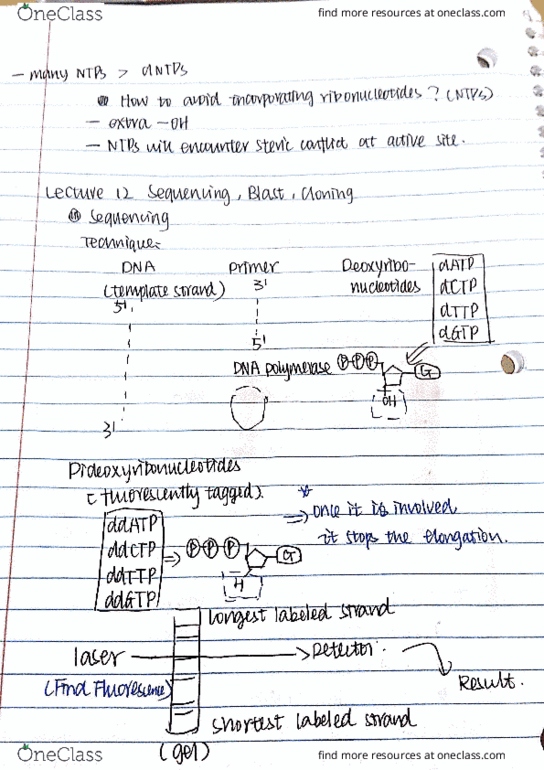 OneClass find more resources at oneclass.com
- many NTPs > dNTPs
How to avoid incorporating ribonucleotides? (NTPs)
- extra -OH
- NTPs will encounter steric conflict at active site.
Lecture 12 Sequencing, Blast, Cloning
Sequencing
Technique:
DNA Primer Deoxyribo-
(template strand) 3' nucleotides
5'
dATP
dCTP
dTTP
dGTP
5'
DNA polymerase P P P G
OH
3'
Dideoxyribonucleotides
(fluorescently tagged).
⇒ once it is involved
it stops the elongation.
ddATP
ddCTP ⇒ P P P G
ddTTP
ddGTP H
longest labeled strand
laser → Detector. Result.
(Find Fluorescence)
shortest labeled strand
(gel)
OneClass find more resources at oneclass.com